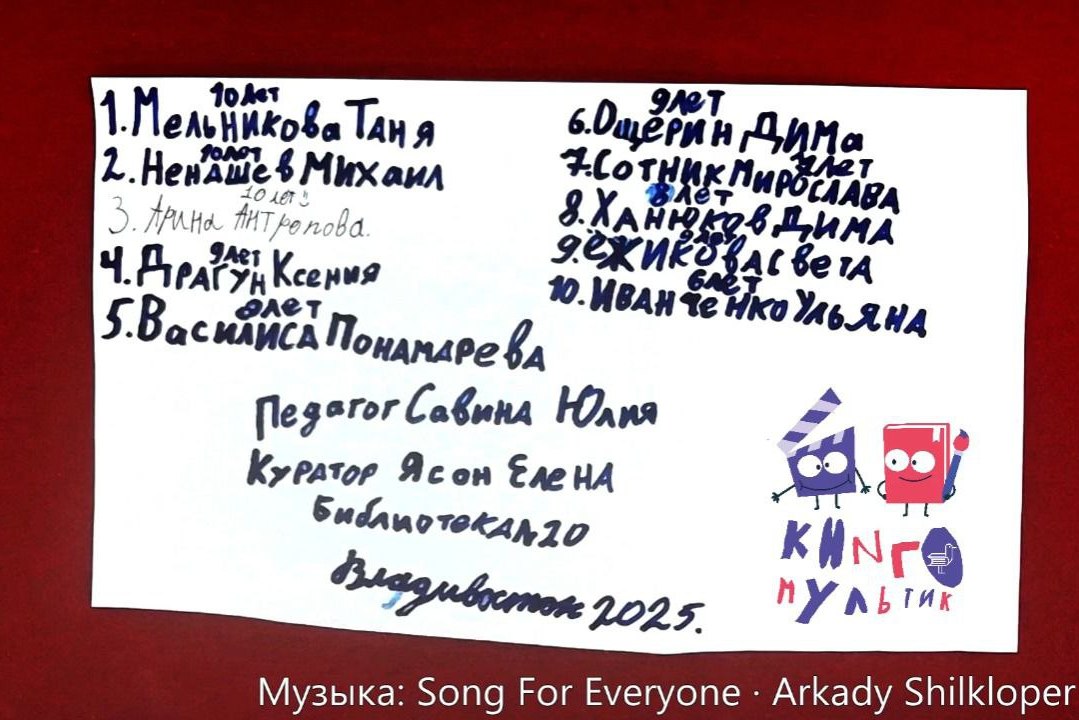 10 лет
1. Мельникова Таня
10 лет
2. Ненашев Михаил
10 лет
3. Арина Антропова.
9 лет
4. Драгун Ксения
8 лет
5. Василиса Понамарева
9 лет
6. Ощерин Дима
7. Сотник Мирослава
лет
8 лет
8. Ханюков Дима
9. Ёжикова Света
лет
6 лет
10. Иванченко Ульяна
Педагог Савина Юлия
Куратор Ясон Елена
Библиотека №20
Владивосток 2025.
КНИГО
МУЛЬТИК
Музыка: Song For Everyone · Arkady Shilkloper